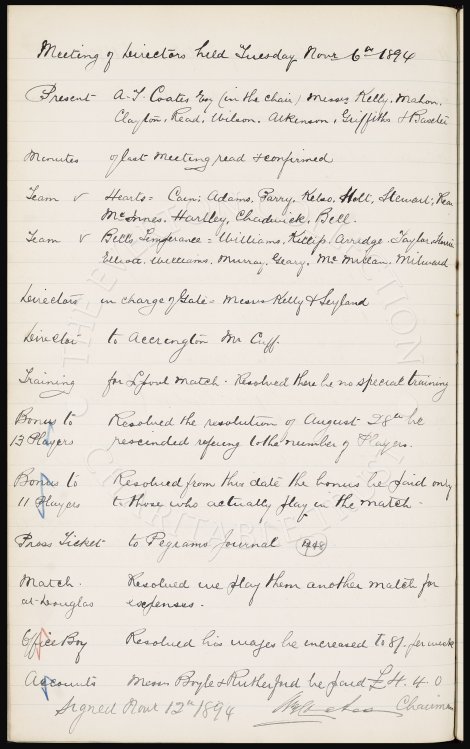 Meeting of Directors held Tuesday Novr 6th 1894
Present A. T. Coates Esq (in the chair) Messrs Kelly. Mahon.
Clayton, Read, Wilson. Atkinson, Griffiths & Baxter
Minutes of last Meeting read & confirmed
Team v Hearts = Cain; Adams, Parry, Kelso, Holt, Stewart;
McInnes. Hartley, Chadwick, Bell.
Team v Bells Temperance = Williams, Killip. Arridge. Taylor.
Elliott. Williams, Murray, Geary, McMillan, Milward
Directors in charge of Gate = Messrs Kelly & Leyland
Director to Accrington Mr Cuff.
Training for L'pool match. Resolved there be no special training
Bonus to Resolved the resolution of August 28th be
13 Players rescinded refering to the number of Players.
Bonus to Resolved from this date the bonus be paid only
11 Players to those who actually play in the match.
Press Ticket to Pegrams Journal
Match. Resolved we play them another match for
at Douglas expenses.
Office Boy Resolved his wages be increased to 8/. per week
Accounts Messrs Boyle & Rutherford be paid £4. 4. 0
Signed Novr 12th 1894 Chairman
THE EVERTON COLLECTION
CHARITABLE TRUST